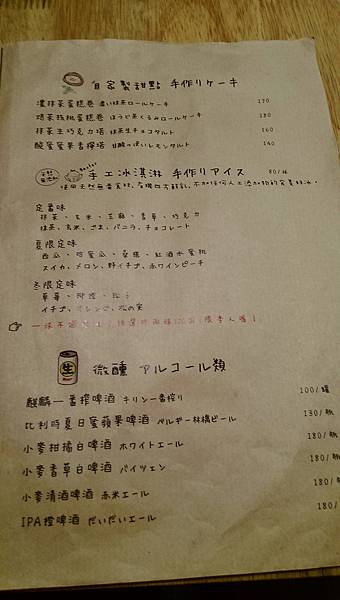 自家製甜點 手作りケーキ
濃抹茶蛋糕卷 濃い抹茶ロールケーキ 170
焙茶核桃蛋糕卷 ほうじ茶くるみロールケーキ 180
抹茶生巧克力塔 抹茶生チョコタルト 160
酸蜜蜜果香檸塔 甘酸っぱいレモンタルト 140
手工冰淇淋 手作りアイス 80/球
定番味
抹茶、玄米、芝麻、香草、巧克力
抹茶、玄米、ごま、バニラ、チョコレート
夏限定味
西瓜、哈蜜瓜、桑椹、紅酒水蜜桃
スイカ、メロン、野イチゴ、ホワインピーチ
冬限定味
草莓、柑橙、松子
イチゴ、オレンジ、松の実
生
微醺 アルコール類
麒麟一番搾啤酒 キリン一番搾り 100/罐
比利時夏日蜜蘋果啤酒 ベルギー林檎ビール 130/瓶
小麥柑橘白啤酒 ホワイトエール 180/瓶
小麥香草白啤酒 バイツェン 180/瓶
小麥清酒啤酒 赤米エール 180/瓶
IPA橙啤酒 だいだいエール 180/